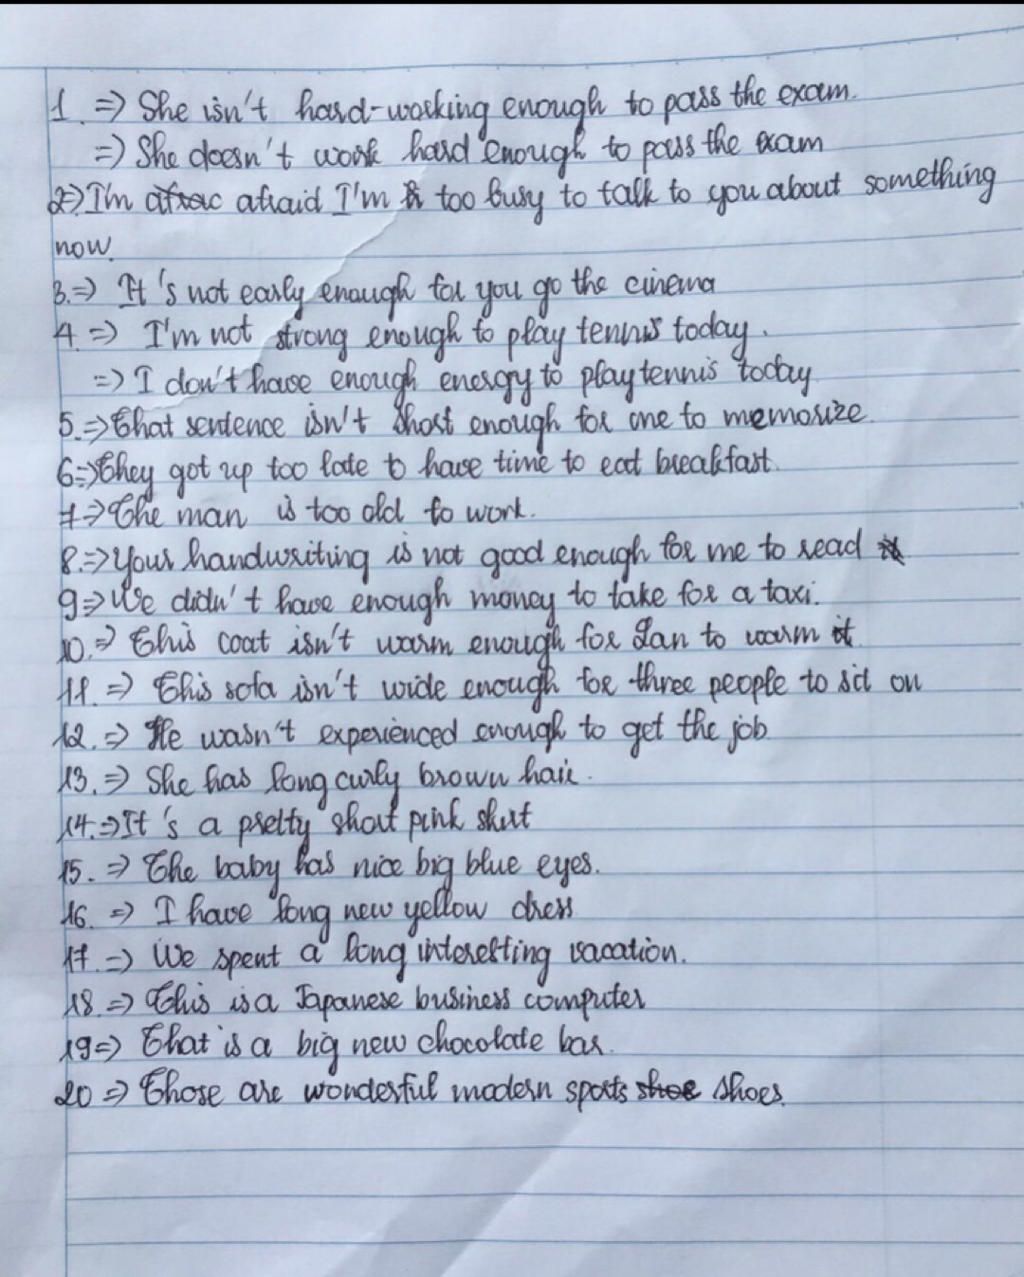 1. => She isn't hard-working enough to pass the exam.
=> She doesn't work hard enough to pass the exam
2=> I'm afraid I'm too busy to talk to you about something
now.
3.=> It's not early enough for you go the cinema
4.=> I'm not strong enough to play tennis today.
=> I don't have enough energy to play tennis today
5.=> That sentence isn't short enough for me to memorize.
6=> They got up too late to have time to eat breakfast.
7=> The man is too old to work.
8.=> Your handwriting is not good enough for me to read
9=> We didn't have enough money to take for a taxi.
10.=> This coat isn't warm enough for Lan to warm it.
11.=> This sofa isn't wide enough for three people to sit on
12.=> He wasn't experienced enough to get the job
13.=> She has long curly brown hair.
14.=> It's a pretty short pink skirt
15.=> The baby has nice big blue eyes.
16.=> I have long new yellow dress
17.=> We spent a long interesting vacation.
18.=> This is a Japanese business computer
19=> That is a big new chocolate bar.
20=> Those are wonderful modern sports shoes.